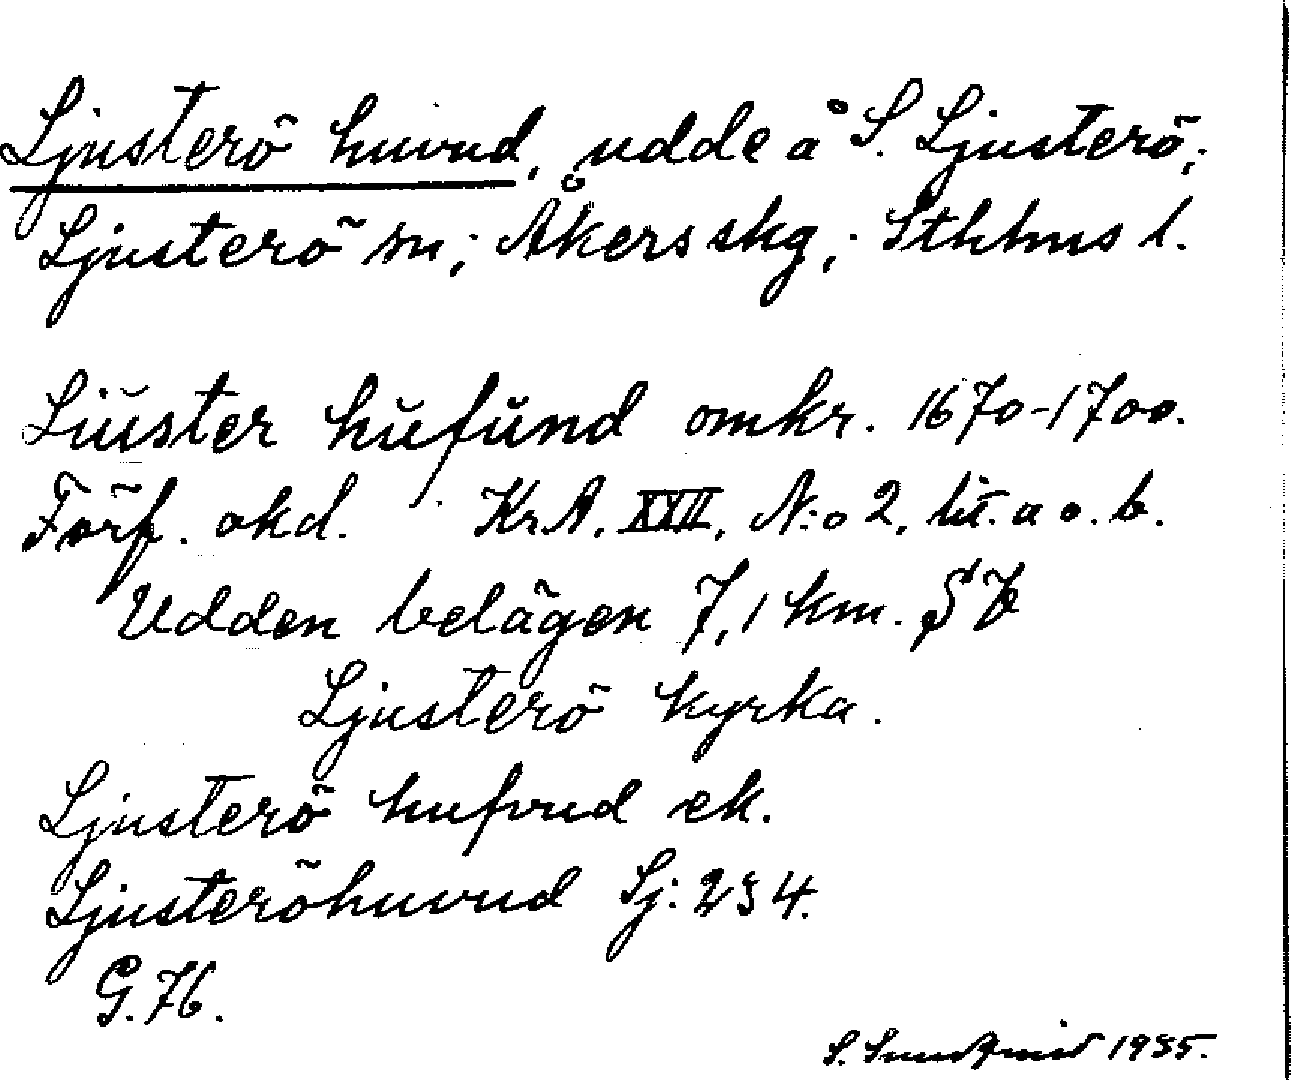 Ljusterö huvud, udde å S. Ljusterö;
Ljusterö sn; Åkers skg; Sthlms l.
Liŭster hŭfŭnd omkr. 1670-1700.
Förf. okd. Kr.A. XXII, N:o 2. lit. a o. b.
Udden belägen 7,1 km. S
Ljusterö kyrka.
Ljusterö hufvud ek.
Ljusteröhuvud Sj: 234.
G.76.
S. 1935.